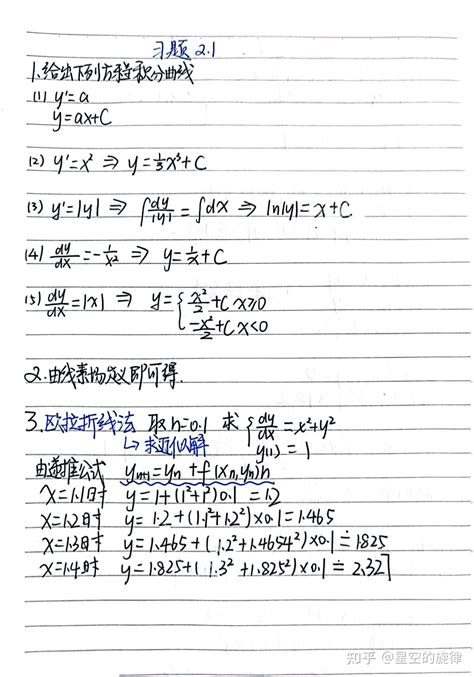 习题 2.1
1.给出下列方程积分曲线
(1) y'=a
y=ax+C
(2) y'=x² ⇒ y=⅓x³+C
(3) y'=|y| ⇒ ∫dy/|y|=∫dx ⇒ ln|y|=x+C
(4) dy/dx=-1/x² ⇒ y=1/x+C
(5) dy/dx=|x| ⇒ y={x²/2+C x≥0
-x²/2+C x<0
2.由线素场定义即可得.
3.欧拉折线法 取h=0.1 求 {dy/dx=x²+y²
↳求近似解 y(1)=1
由递推公式 yn+1=yn+f(xn,yn)h
x=1.1时 y=1+(1²+1²)0.1=1.2
x=1.2时 y=1.2+(1.1²+1.2²)×0.1=1.465
x=1.3时 y=1.465+(1.2²+1.4654²)×0.1≐1.825
x=1.4时 y=1.825+(1.3²+1.825²)×0.1≐2.327
知乎 @星空的旋律